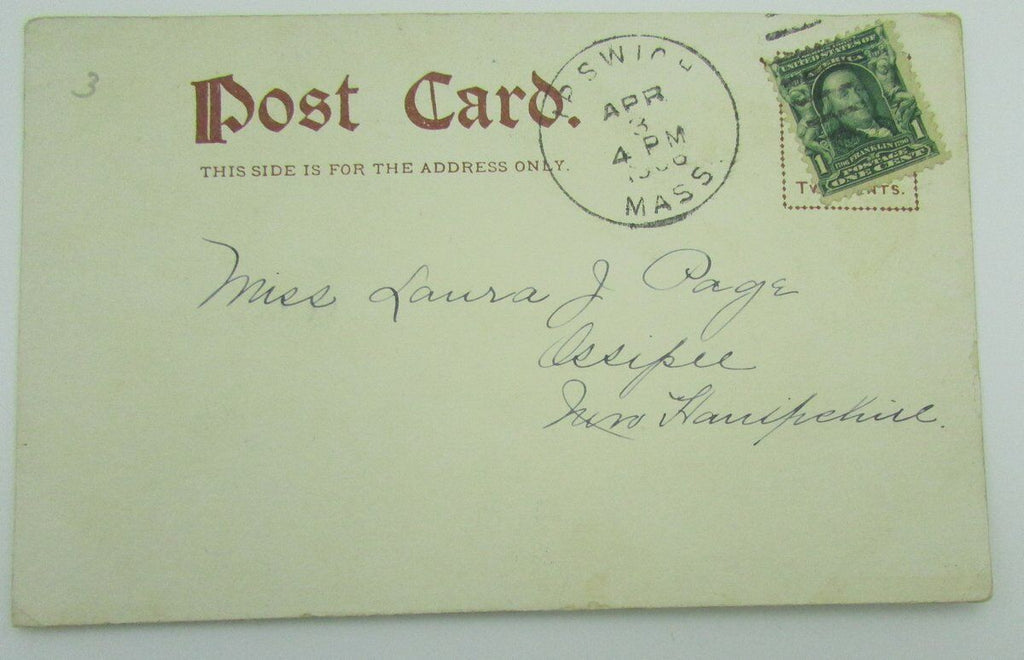 3
Post Card.
THIS SIDE IS FOR THE ADDRESS ONLY.
IPSWICH
APR
3
4 PM
MASS.
UNITED STATES OF
AMERICA
1790 FRANKLIN 1706
POSTAGE
1 ONE CENT 1
Miss Laura J Page
Ossipee
New Hampshire.